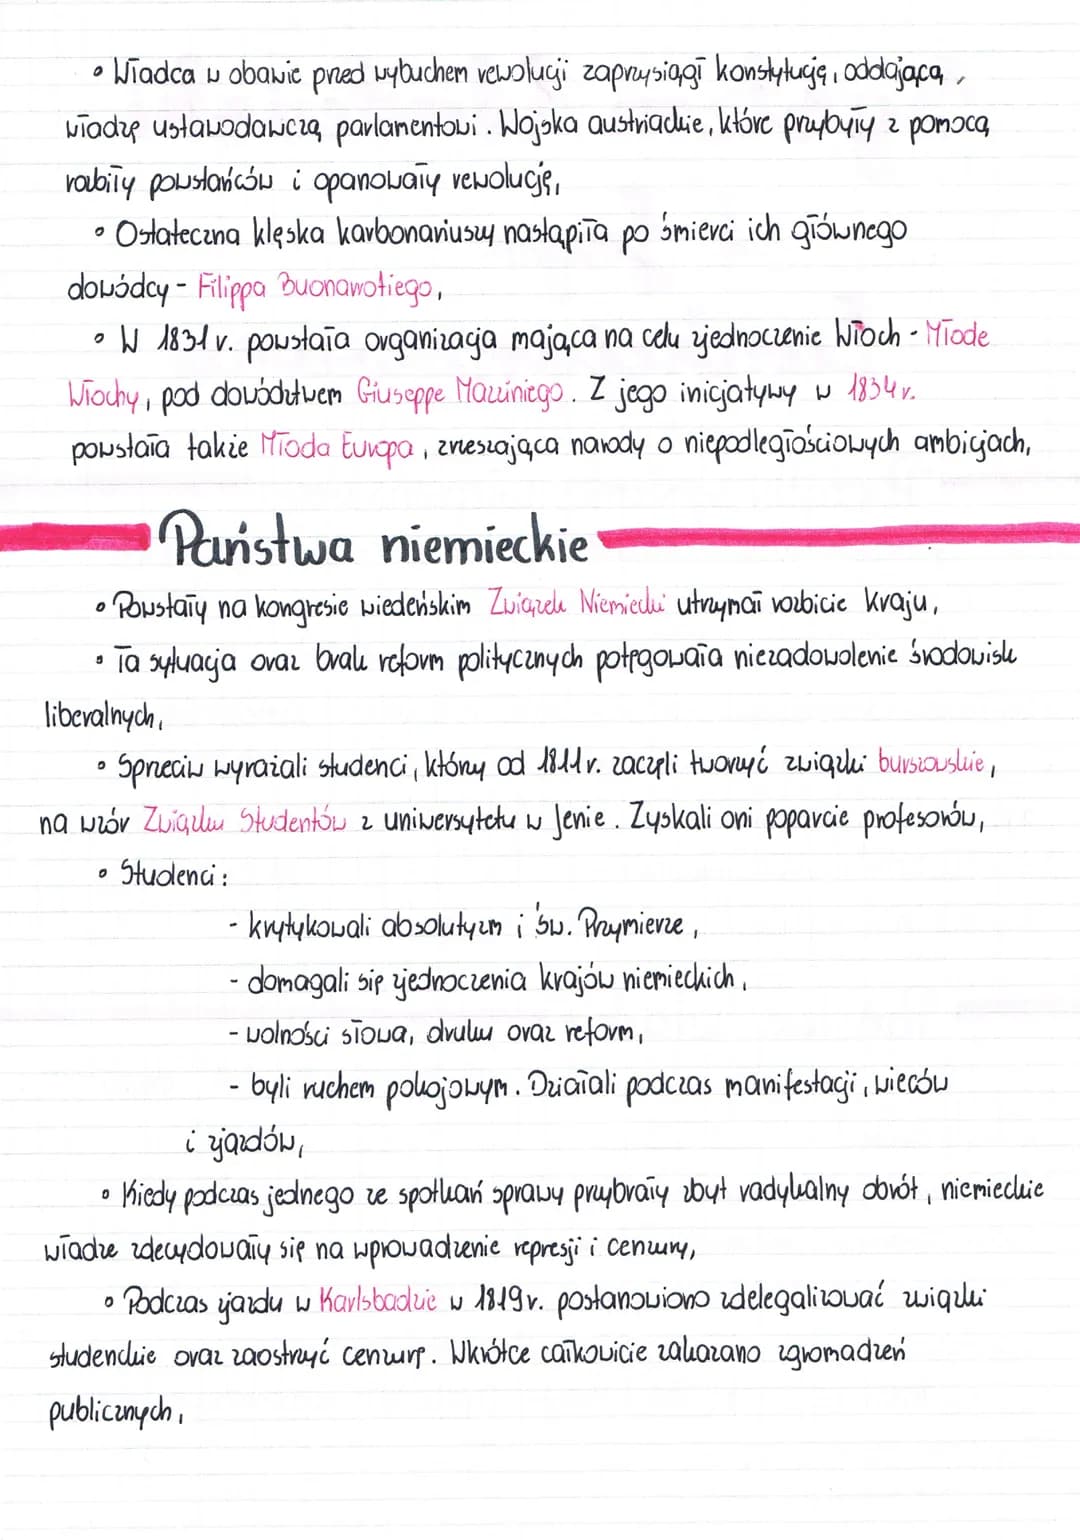 • Władca w obawie przed wybuchem rewolucji zaprzysiągł konstytucję, oddającą,
władzę ustawodawczą parlamentowi. Wojska austriackie, które przybyły z pomocą
rozbiły powstańców i opanowały rewolucję,
• Ostateczna klęska karbonariuszy nastąpiła po śmierci ich głównego
dowódcy - Filippa Buonarotiego,
• W 1831 r. powstała organizacja mająca na celu zjednoczenie Włoch - Młode
Włochy, pod dowództwem Giuseppe Mazziniego. Z jego inicjatywy w 1834 r.
powstała także Młoda Europa, zrzeszająca narody o niepodległościowych ambicjach,
Państwa niemieckie
• Powstały na kongresie wiedeńskim Związek Niemiecki utrzymał rozbicie kraju,
• Ta sytuacja oraz brak reform politycznych potęgowała niezadowolenie środowisk
liberalnych,
• Sprzeciw wyrażali studenci, który od 1811 r. zaczęli tworzyć związki burszowskie,
na wzór Związku Studentów z uniwersytetu w Jenie. Zyskali oni poparcie profesorów,
• Studenci:
- krytykowali absolutyzm i Św. Przymierze,
- domagali się zjednoczenia krajów niemieckich,
- wolności słowa, druku oraz reform,
- byli ruchem pokojowym. Działali podczas manifestacji, wieców
i zjazdów,
• Kiedy podczas jednego ze spotkań sprawy przybrały zbyt radykalny obrót, niemieckie
władze zdecydowały się na wprowadzenie represji i cenzury,
• Podczas zjazdu w Karlsbadzie w 1819 r. postanowiono zdelegalizować związki
studenckie oraz zaostrzyć cenzurę. Wkrótce całkowicie zakazano zgromadzeń
publicznych,